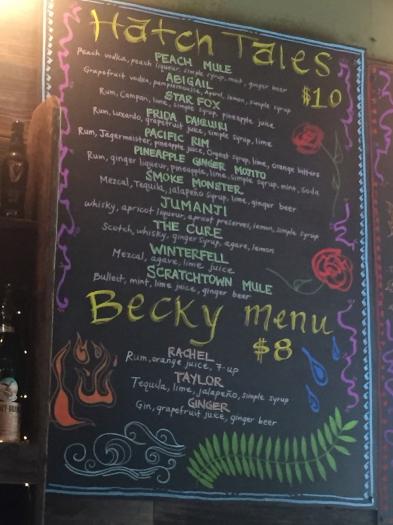 Hatch Tales
$10
PEACH MULE
Peach vodka, peach liqueur, simple syrup, mint, ginger beer
ABIGAIL
Grapefruit vodka, pamplemousse, Aperol, lemon, simple syrup
STAR FOX
Rum, Campari, lime, simple syrup, pineapple juice
FRIDA DAIQUIRI
Rum, Luxardo, grapefruit juice, simple syrup, lime
PACIFIC RIM
Rum, Jägermeister, pineapple juice, Orgeat syrup, lime, orange bitters
PINEAPPLE GINGER MOJITO
Rum, ginger liqueur, pineapple, lime, simple syrup, mint, soda
SMOKE MONSTER
Mezcal, Tequila, jalapeño syrup, lime, ginger beer
JUMANJI
whisky, apricot liqueur, apricot preserves, lemon, simple syrup
THE CURE
Scotch, whisky, ginger syrup, agave, lemon
WINTERFELL
Mezcal, agave, lime juice
SCRATCHTOWN MULE
Bulleit, mint, lime juice, ginger beer
Becky menu
$8
RACHEL
Rum, orange juice, 7-up
TAYLOR
Tequila, lime, jalapeño, simple syrup
GINGER
Gin, grapefruit juice, ginger beer